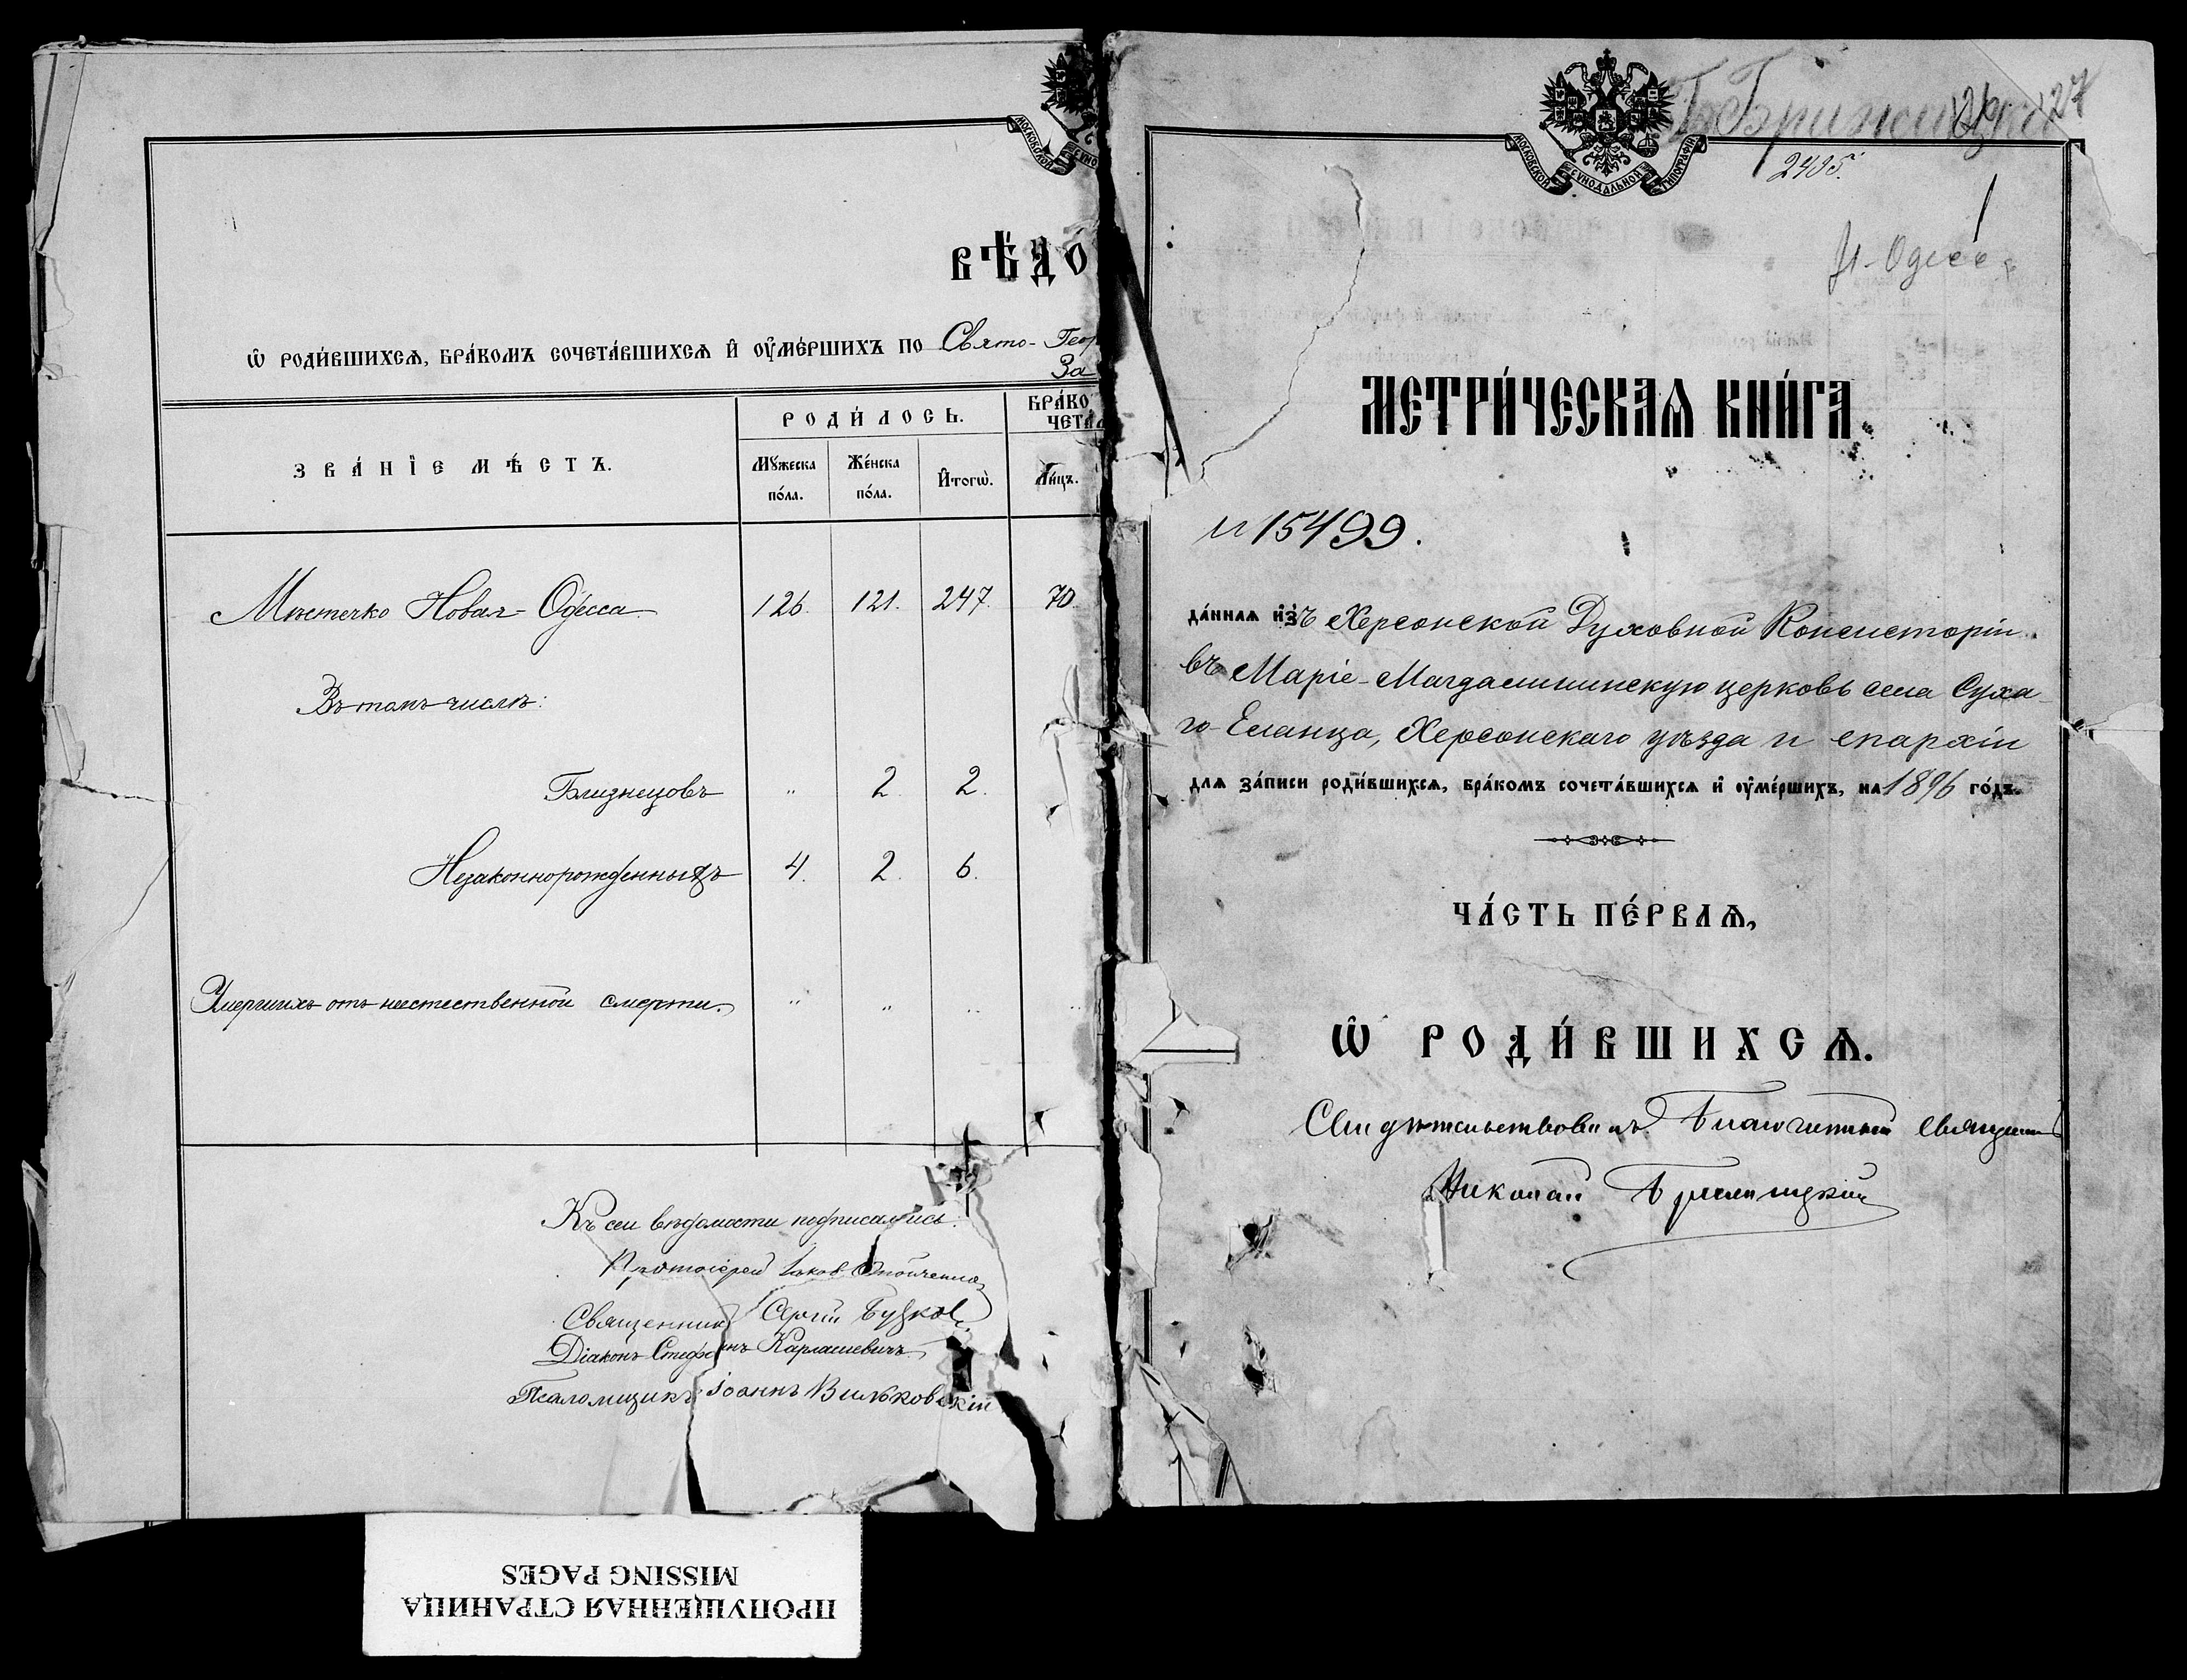 МОСКОВСКОЙ СУНО
ВѢ́ДО
Ѡ҆ РОДИ́ВШИХСѦ, БРА́КОМЪ СОЧЕТА́ВШИХСѦ И҆ ОУ҆МЕ́РШИХЪ ПО Свято-Геор
За
ЗВА́НІЕ МѢ́СТЪ.
РОДИ́ЛОСЬ.
БРА́КО
ЧЕТА́
Мꙋ́жеска по́ла.
Же́нска по́ла.
И҆тогѡ̀.
Ли́цъ.
Мѣстечко Новая-Одесса 126. 121. 247. 70.
Въ томъ числѣ:
Близнецовъ " 2. 2.
Незаконнорожденныхъ 4. 2. 6.
Умершихъ отъ неестественной смерти. " " "
Къ сей вѣдомости подписались:
Протоіерей Іаковъ
Священникъ Сергій
Діаконъ Стефанъ
Псаломщикъ Іоаннъ Вильковскій
ПРОПУЩЕННАЯ СТРАНИЦА
MISSING PAGES
МОСКОВСКОЙ СУНОДАЛЬНОЙ ТИПОГРАФІИ
127
2495.
1
Н-Одесса
МЕТРИ́ЧЕСКАѦ КНИ́ГА
№ 15499.
да́ннаѧ и҆зъ Херсонской Духовной Консисторіи
въ Маріе-Магдалининскую церковь села Суха-
го-Еланца, Херсонскаго уѣзда и епархіи
длѧ за́писи роди́вшихсѧ, бра́комъ сочета́вшихсѧ и҆ оу҆ме́ршихъ, на 1896 го́дъ.
ЧА́СТЬ ПЕ́РВАѦ,
Ѡ҆ РОДИ́ВШИХСѦ.
Свидѣтельствовалъ Благочинный Священникъ
Николай